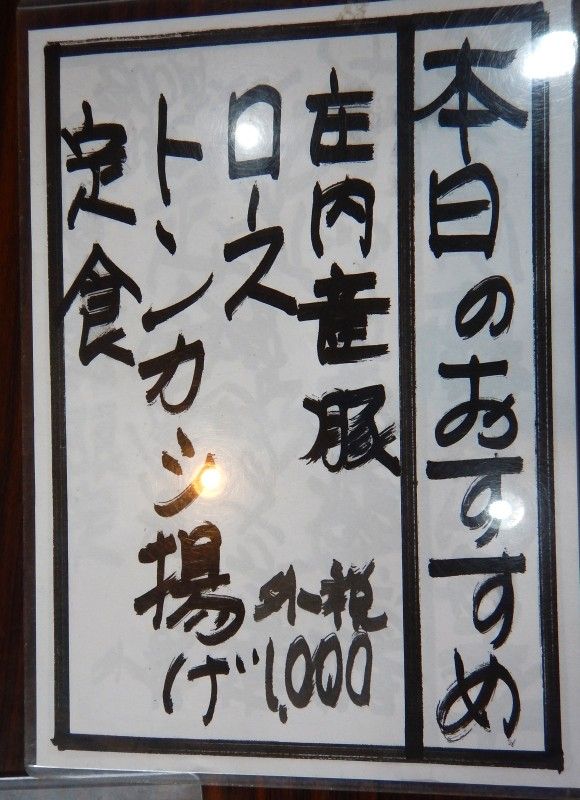 本日のおすすめ
庄内産豚
ロース
トンカツ揚げ
定食
外税
1,000